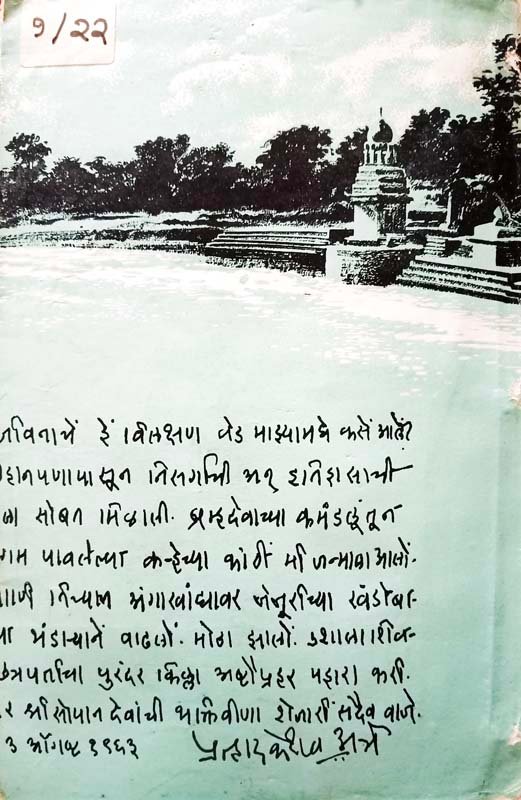 ९/२२
जीवनाचें हें विलक्षण वेड माझ्यामधें कसें आलें?
लहानपणापासून निसर्गाची अन् इतिहासाची
मला सोबत मिळाली. ब्रम्हदेवाच्या कमंडलूंतून
उगम पावलेल्या कऱ्हेच्या कांठीं मी जन्माला आलों.
आणि अंगाखांद्यावर जेजूरीच्या खंडोबा-
च्या भंडाऱ्यानें वाढलों. मोठा झालों. उशाला शिव-
छत्रपतींचा पुरंदर किल्ला अष्टौप्रहर पहारा करी.
तर श्री सोपानदेवांची भक्तिवीणा शेजारीं सदैव वाजे.
३ ऑगस्ट १९६३ प्रल्हाद केशव अत्रे